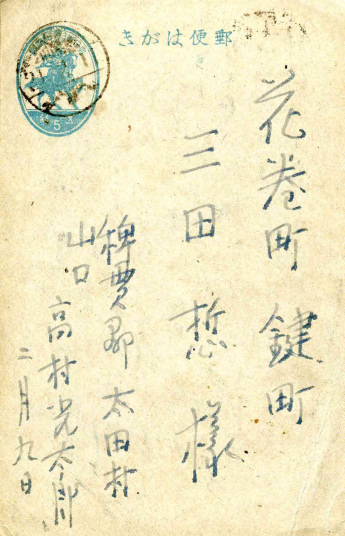 きがは便郵
5
花巻町 鍵町
三田 悊 様
稗貫郡 太田村
山口 高村光太郎
二月九日